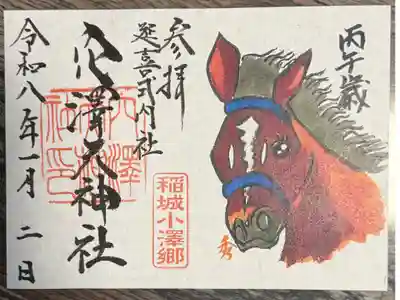 丙午歳
参拝
延喜式内社
穴澤天神社
令和八年一月二日
稲城小澤郷
秀